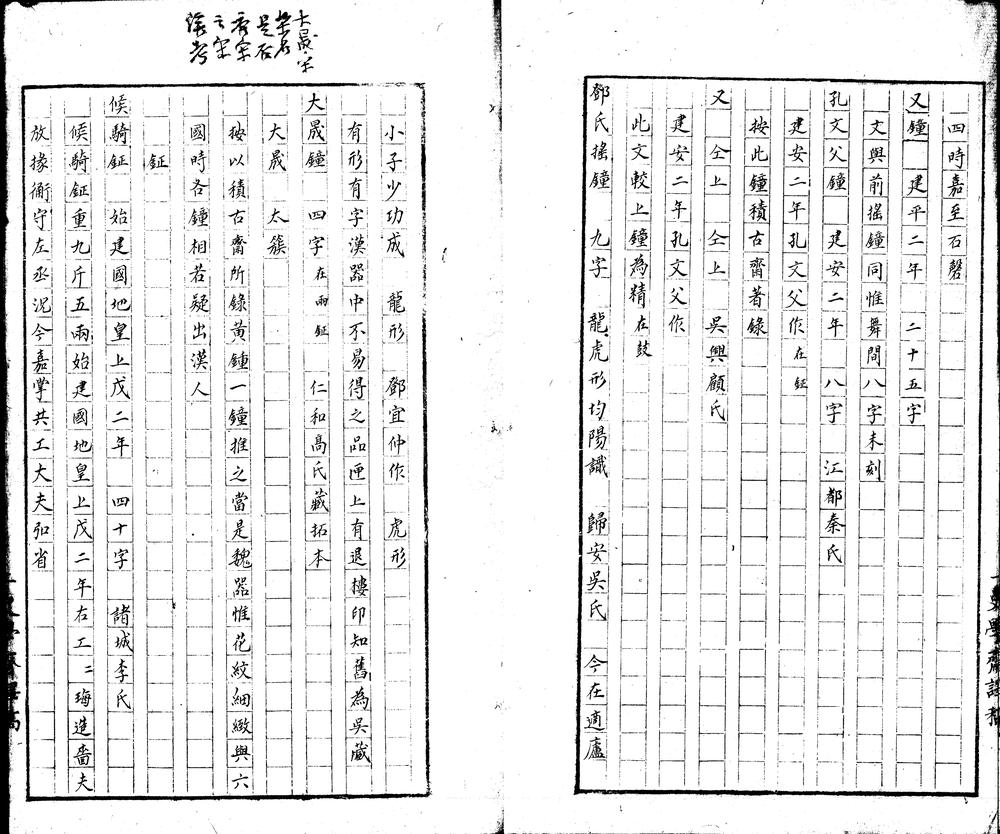 四時嘉至石磬
又鐘 建平二年 二十五字
文與前搖鐘同惟舞間八字未刻
孔文父鐘 建安二年 八字 江都秦氏
建安二年孔文父作在鉦
按此鐘積古齋著錄
又 仝上 仝上 吳興顧氏
建安二年孔文父作
此文較上鐘為精在鼓
鄧氏搖鐘 九字 龍虎形均陽識 歸安吳氏 今在適廬
小子少功成 龍形 鄧宜仲作 虎形
有形有字漢器中不易得之品匣上有退樓印知舊為吳藏
大晟鐘 四字在兩鉦 仁和高氏藏拓本
大晟 太簇
按以積古齋所錄黃鍾一鐘推之當是魏器惟花紋細緻與六
國時各鐘相若疑出漢人
鉦
候騎鉦 始建國地皇上戊二年 四十字 諸城李氏
候騎鉦重九斤五兩始建國地皇上戊二年右工二㻑造嗇夫
放掾衕守左丞況令嘉掌共工大夫弘省
大晟宋
樂名
是否